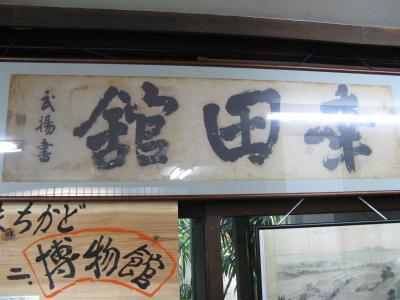 田舘
武揚書
まちかど
二、博物館